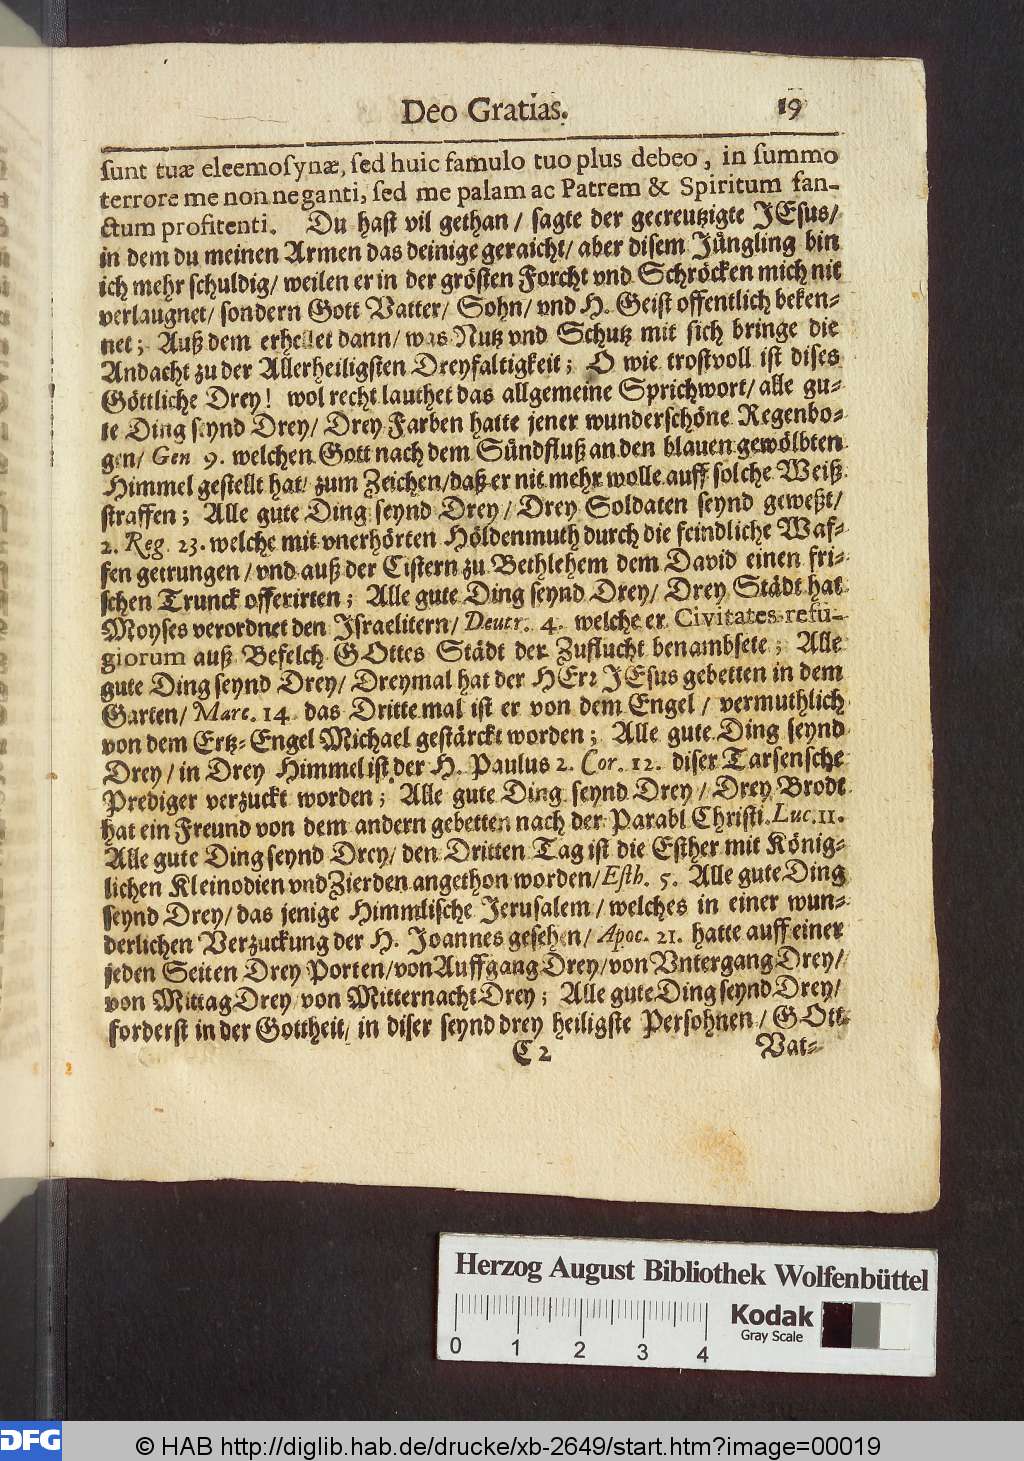 Deo Gratias. 19
sunt tuæ eleemosynæ, sed huic famulo tuo plus debeo, in summo
terrore me non neganti, sed me palam ac Patrem & Spiritum san-
ctum profitenti. Du hast vil gethan/ sagte der gecreutzigte JEsus/
in dem du meinen Armen das deinige geraicht/ aber disem Jüngling bin
ich mehr schuldig/ weilen er in der grösten Forcht vnd Schröcken mich nit
verlaugnet/ sondern Gott Vatter/ Sohn/ vnd H. Geist offentlich beken-
net; Auß dem erhellet dann/ was Nutz vnd Schutz mit sich bringe die
Andacht zu der Allerheiligsten Dreyfaltigkeit; O wie trostvoll ist dises
Göttliche Drey! wol recht lauthet das allgemeine Sprichwort/ alle gu-
te Ding seynd Drey/ Drey Farben hatte jener wunderschöne Regenbo-
gen/ Gen 9. welchen Gott nach dem Sündfluß an den blauen gewölbten
Himmel gestellt hat/ zum Zeichen/daß er nit mehr wolle auff solche Weiß
straffen; Alle gute Ding seynd Drey/ Drey Soldaten seynd geweßt/
2. Reg. 23. welche mit vnerhörten Höldenmuth durch die feindliche Waf-
fen getrungen/ vnd auß der Cistern zu Bethlehem dem David einen fri-
schen Trunck offerirten; Alle gute Ding seynd Drey/ Drey Städt hat
Moyses verordnet den Israelitern/ Deutr. 4. welche er Civitates refu-
giorum auß Befelch GOttes Städt der Zuflucht benambsete; Alle
gute Ding seynd Drey/ Dreymal hat der HErr JEsus gebetten in dem
Garten/ Marc. 14 das Dritte mal ist er von dem Engel/ vermuthlich
von dem Ertz-Engel Michael gestärckt worden; Alle gute Ding seynd
Drey/ in Drey Himmel ist der H. Paulus 2. Cor. 12. diser Tarsensche
Prediger verzuckt worden; Alle gute Ding seynd Drey/ Drey Brodt
hat ein Freund von dem andern gebetten nach der Parabl Christi. Luc. 11.
Alle gute Ding seynd Drey/ den Dritten Tag ist die Esther mit König-
lichen Kleinodien vnd Zierden angethon worden/ Esth. 5. Alle gute Ding
seynd Drey/ das jenige Himmlische Jerusalem/ welches in einer wun-
derlichen Verzuckung der H. Joannes gesehen/ Apoc. 21. hatte auff einer
jeden Seiten Drey Porten/von Auffgang Drey/von Vntergang Drey/
von Mittag Drey von Mitternacht Drey; Alle gute Ding seynd Drey/
forderst in der Gottheit/ in diser seynd drey heiligste Persohnen/ GOtt
C 2 Vat-
Herzog August Bibliothek Wolfenbüttel
0 1 2 3 4
Kodak
Gray Scale
DFG © HAB http://diglib.hab.de/drucke/xb-2649/start.htm?image=00019